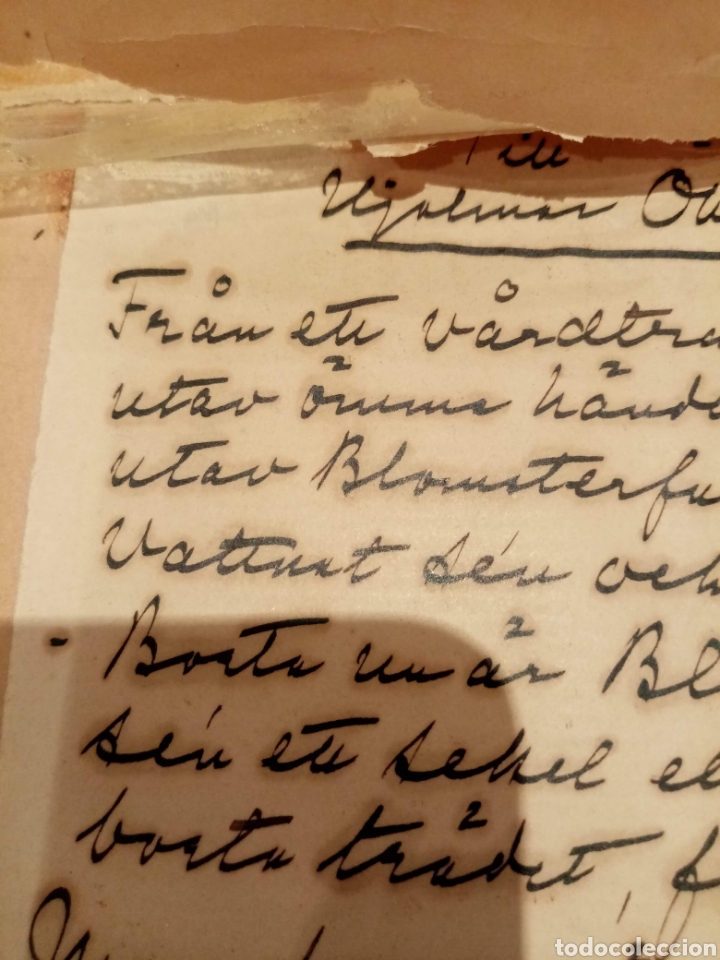 Till
Hjalmar
Från ett vårdträ
utav ömma hände
utav Blomsterfu
Vattnat sén och
- Borta nu är Bl
sén ett sekel el
borta trädet, f
todocoleccion